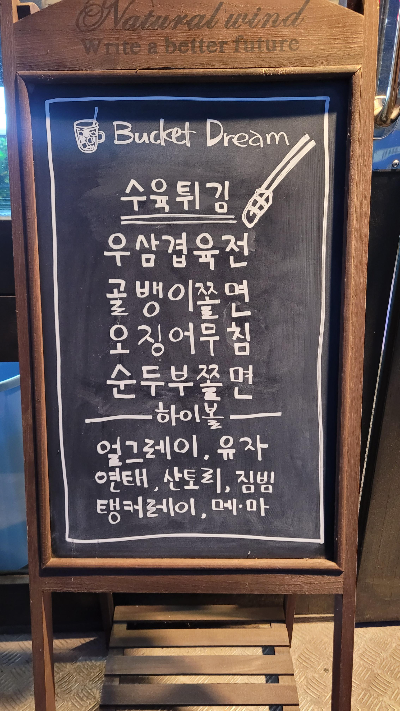 Natural wind
Write a better future
Bucket Dream
수육튀김
우삼겹육전
골뱅이쫄면
오징어무침
순두부쫄면
하이볼
얼그레이, 유자
연태, 산토리, 짐빔
탱커레이, 메·마